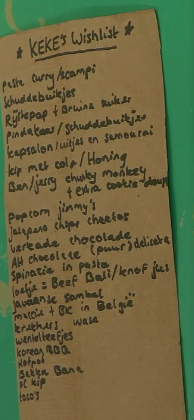 * KEKE's Wishlist *
paste curry/scampi
Schuddebuikjes
Rijstepap + Bruine suiker
Pindakaas/schuddebuikjes
kapsalon/uitjes en samourai
kip met cola/Honing
Ben/jerry chunky monkey
+ extra cookie-dough
Popcorn jimmy's
jalapeno chips cheetos
verkade chocolade
AH chocolade (puur) delicata
spinazie in pasta
Beef Bali/knof jus
javaanse sambal
+ BK in België
wasa
wentelteefjes
korean BBQ
Hotpot
Bakka Bana
kip
taco's